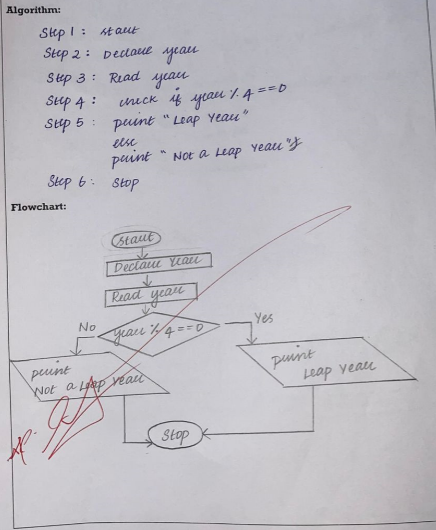 Algorithm:
Step 1 : start
Step 2 : Declare year
Step 3 : Read year
Step 4 : check if year % 4 == 0
Step 5 : print "Leap Year"
else
print "Not a Leap Year"}
Step 6 : Stop
Flowchart:
start
Declare Year
Read year
No
year % 4 == 0
Yes
print
Not a Leap Year
print
Leap Year
Stop